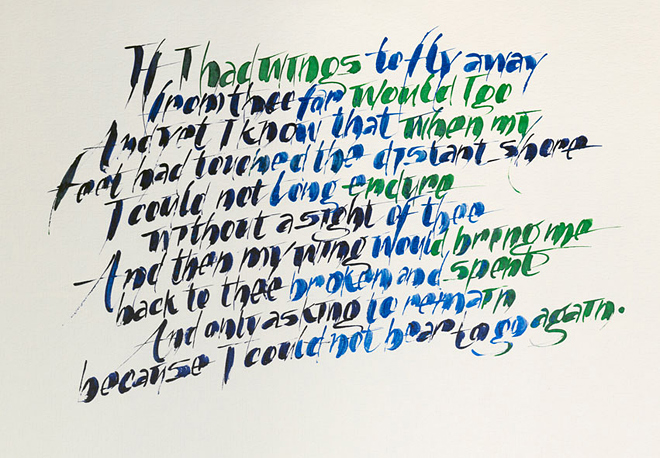 If I had wings to fly away
from thee far would I go
And yet I know that when my
feet had touched the distant shore
I could not long endure
without a sight of thee
And then my wing would bring me
back to thee broken and spent
And only asking to remain
because I could not bear to go again.